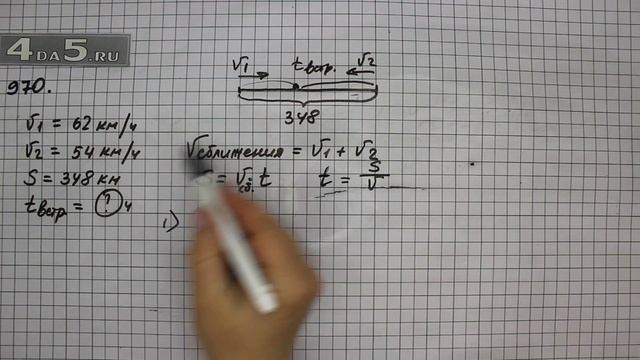 4DA5.RU
970.
V1 = 62 км/ч
V2 = 54 км/ч
S = 348 км
tвстр. = ? ч
V1 tвстр. V2
348
Vсближения = V1 + V2
= Vсб. t t = S/V
1)